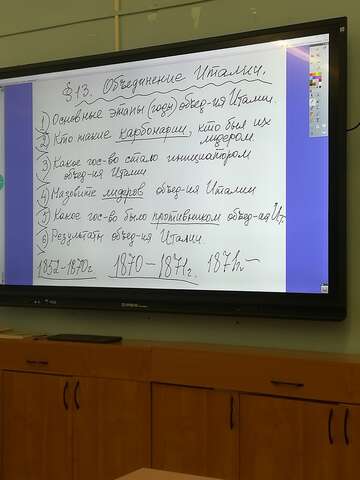 §13. Объединение Италии.
1) Основные этапы (годы) объед-ия Италии.
2) Кто такие карбонарии, кто был их
лидером
3) Какое гос-во стало инициатором
объед-ия Италии
4) Назовите лидеров объед-ия Италии
5) Какое гос-во было противником объед-ия Ит.
6) Результаты объед-ия Италии.
1852-1870г 1870-1871г.